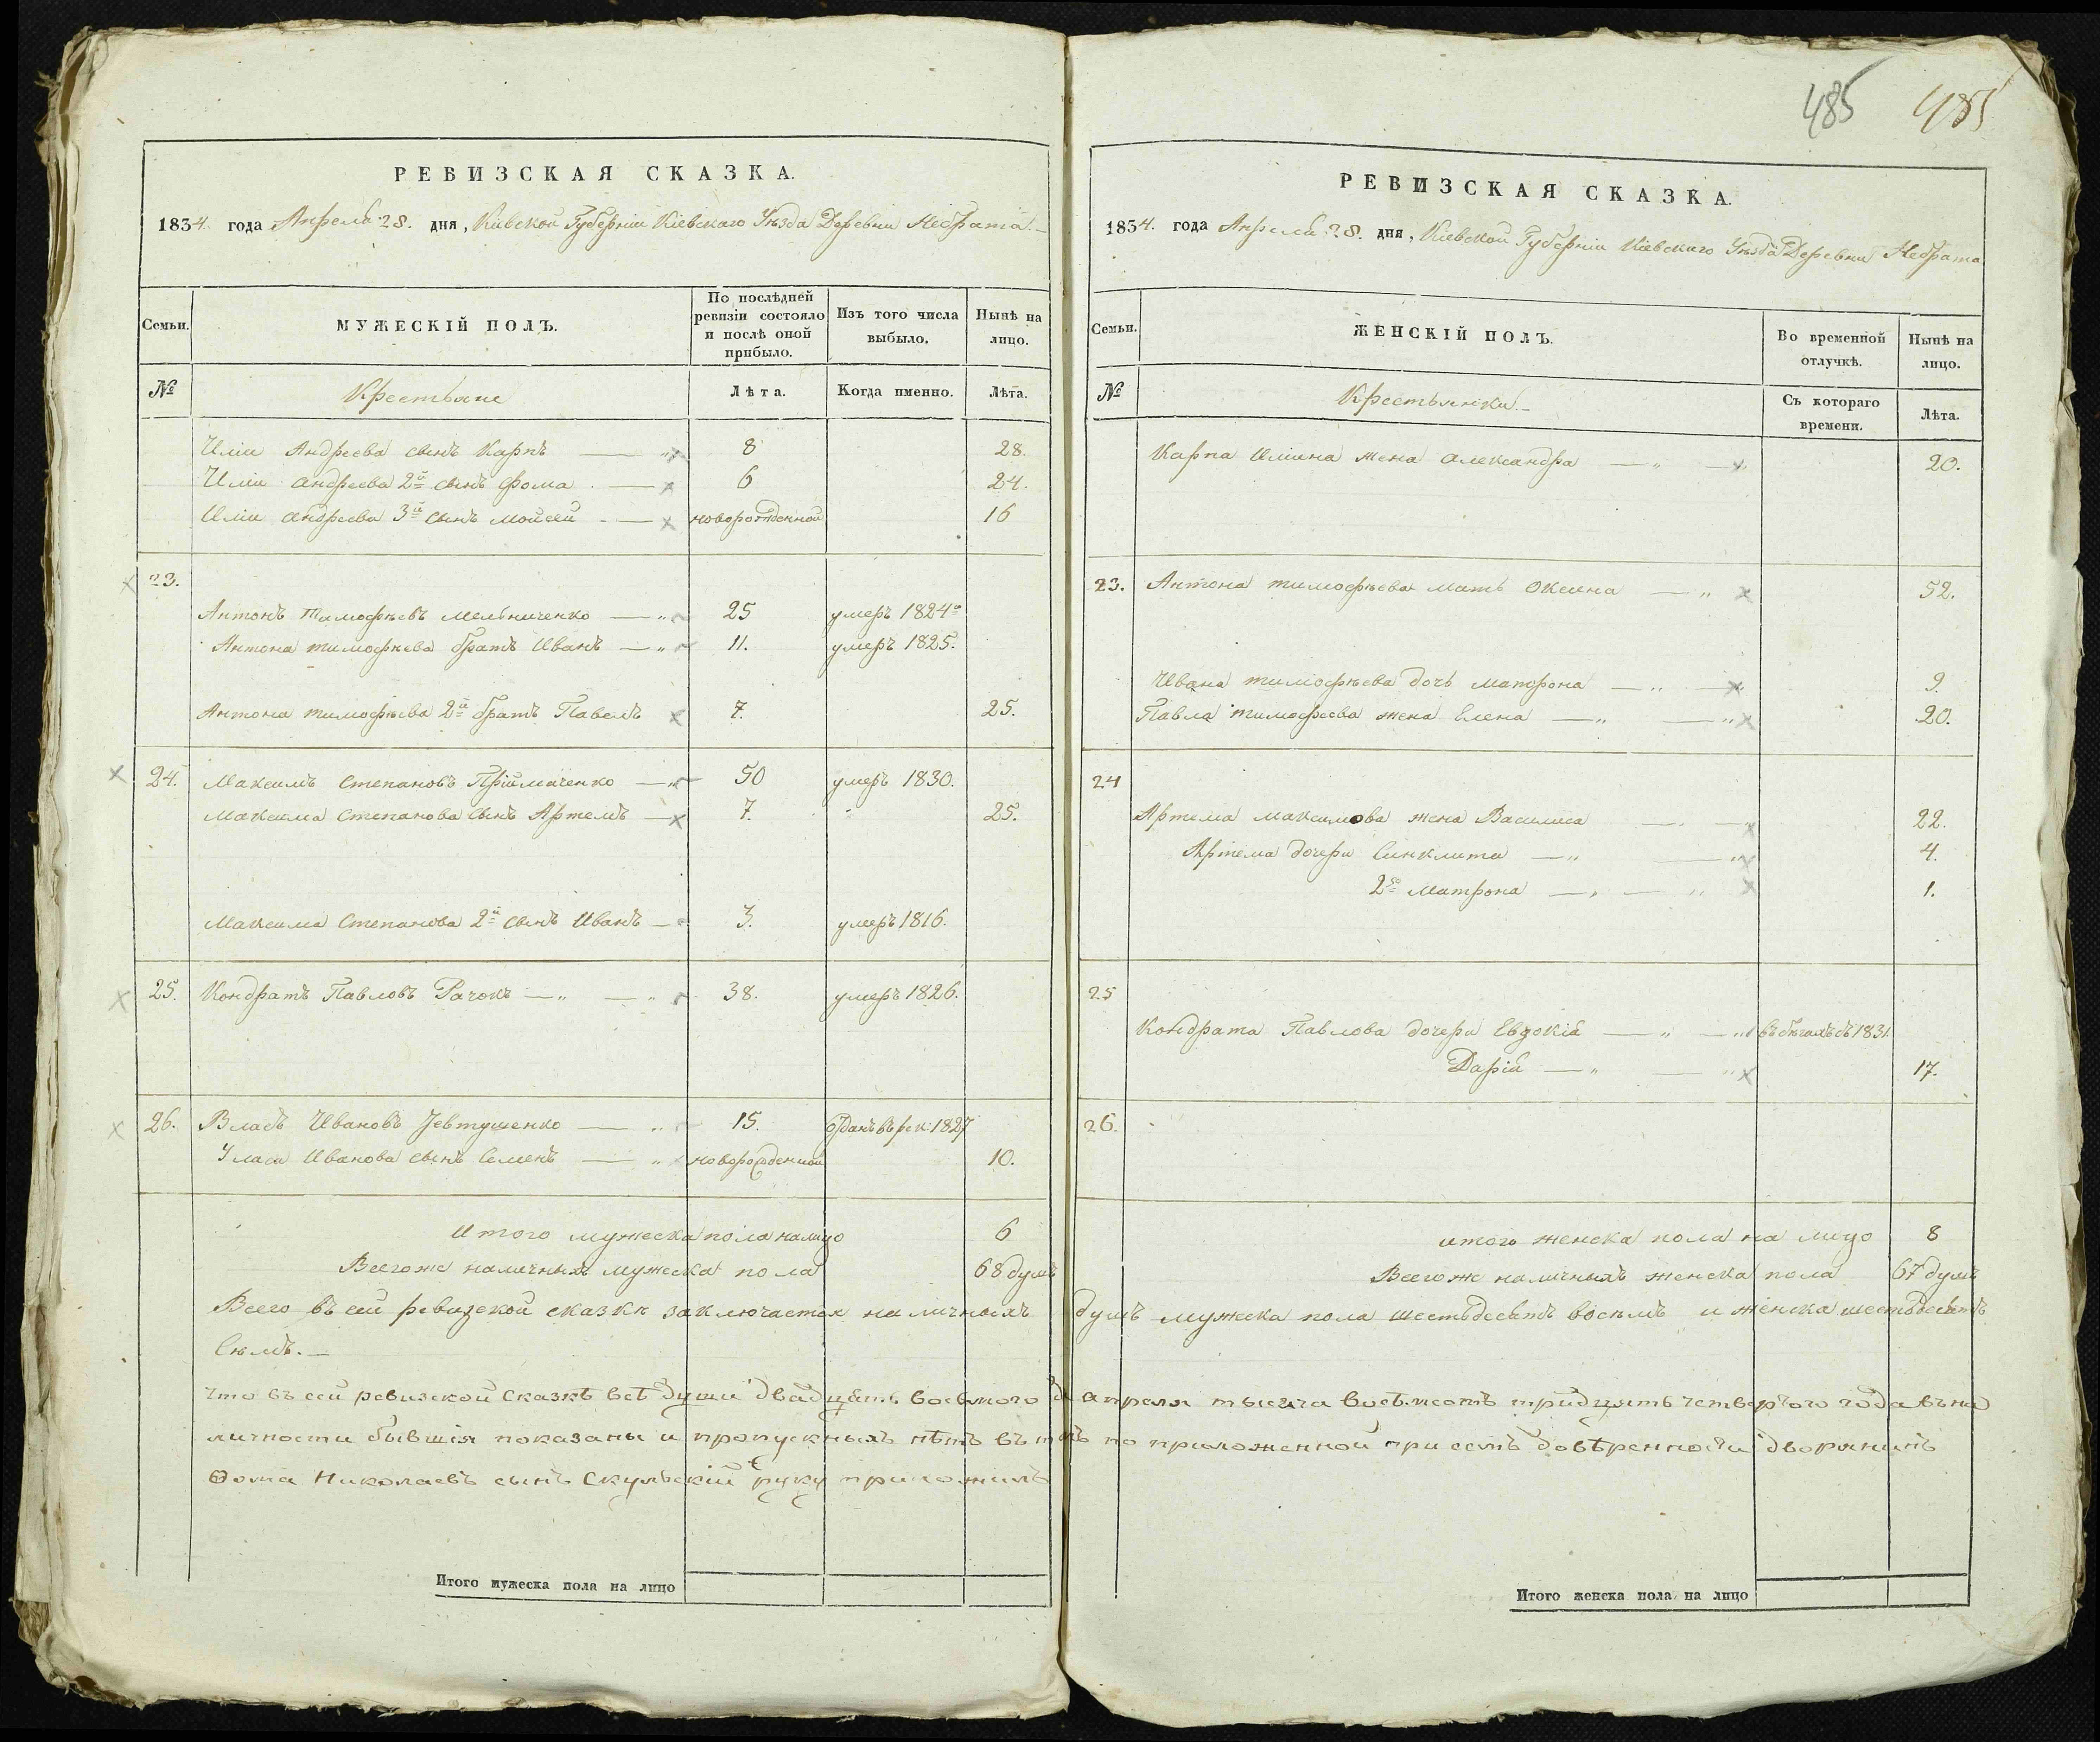 485 485
РЕВИЗСКАЯ СКАЗКА.
1834 года Апреля 28. дня, Киевской Губерніи Кіевскаго Уѣзда Деревни Небрата
Семьи. МУЖЕСКІЙ ПОЛЪ. По послѣдней ревизіи состояло и послѣ оной прибыло. Изъ того числа выбыло. Нынѣ на лицо.
№ Крестьяне Лѣта. Когда именно. Лѣта.
Иліи Андреева сынъ Карпъ 8 28.
Иліи Андреева 2й сынъ Фома 6 24.
Иліи Андреева 3й сынъ Мойсей новорожденной 16
23.
Антонъ Тимофѣевъ Мельниченко 25 умеръ 1824го
Антона Тимофеева братъ Иванъ 11. умеръ 1825.
Антона Тимофѣева 2й братъ Павелъ 7. 25.
24. Максимъ Степановъ Пріймаченко 50 умеръ 1830.
Максима Степанова сынъ Артемъ 7. 25.
Максима Степанова 2й сынъ Иванъ 3. умеръ 1816.
25. Кондратъ Павловъ Рачокъ 38. умеръ 1826.
26. Власъ Ивановъ Јевтушенко 15. отданъ въ рек: 1827
Уласа Иванова сынъ Семенъ новорожденной 10.
Итого мужеска пола налицо 6
Всегоже наличныхъ мужеска пола 68 душъ
РЕВИЗСКАЯ СКАЗКА.
1834. года Апреля 28. дня, Кіевской Губерніи Кіевскаго Уѣзда Деревни Небрата
Семьи. ЖЕНСКІЙ ПОЛЪ. Во временной отлучкѣ. Нынѣ на лицо.
№ Крестьянки. Съ котораго времени. Лѣта.
Карпа Иліина жена Александра 20.
23. Антона Тимофѣева мать Оксина 52.
Ивана Тимофѣева дочь Матрона 9.
Павла Тимофеева жена Елена 20.
24
Артема Максимова жена Василиса 22.
Артема дочери Синклита 4.
2я Матрона 1.
25
Кондрата Павлова дочери Евдокія въ бѣгахъ съ 1831.
Дарія 17.
26.
итого женска пола на лицо 8
Всегоже наличныхъ женска пола 67 душъ
Всего въ сей ревизской сказкѣ заключается наличныхъ душъ мужска пола шестьдесятъ восемъ и женска шестьдесятъ
семъ.
что въ сей ревизской сказкѣ всѣ души двадцать восьмого д. апреля тысяча восѣмсотъ тридцять четвертого года въ на
личности бывшія показаны и пропускныхъ нѣтъ въ томъ по приложенной при семъ довѣренности дворянинъ
Ѳома Николаевъ сынъ Скульскій руку приложилъ
Итого мужеска пола на лицо
Итого женска пола на лицо